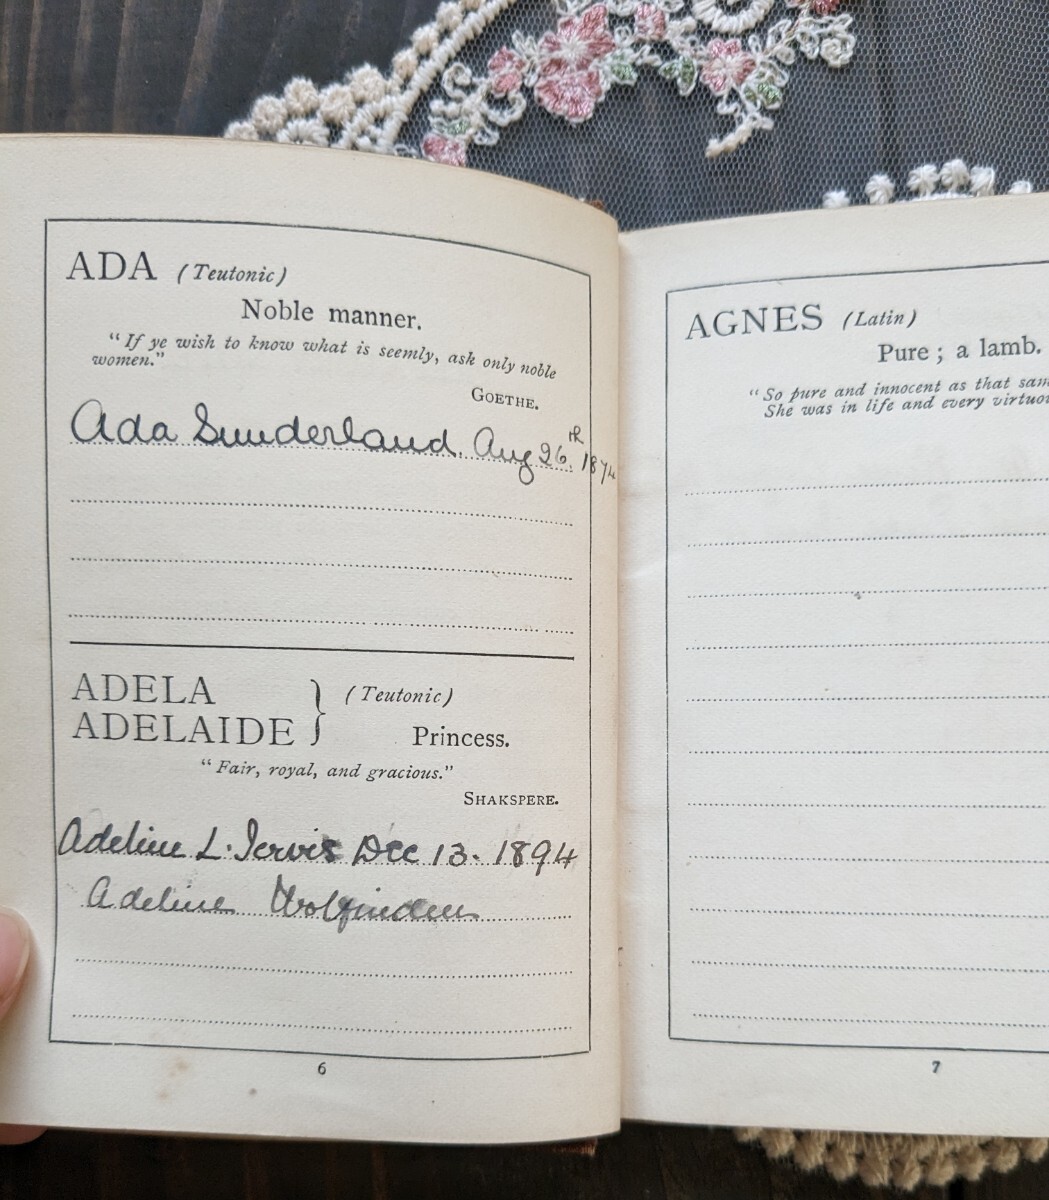 ADA (Teutonic)
Noble manner.
"If ye wish to know what is seemly, ask only noble
women."
GOETHE.
Ada Sunderland. Aug 26.th 1874
ADELA
ADELAIDE } (Teutonic)
Princess.
"Fair, royal, and gracious."
SHAKSPERE.
Adeline L. Jervis Dec 13. 1894
Adeline
6
AGNES (Latin)
Pure; a lamb.
"So pure and innocent as that
She was in life and every
7